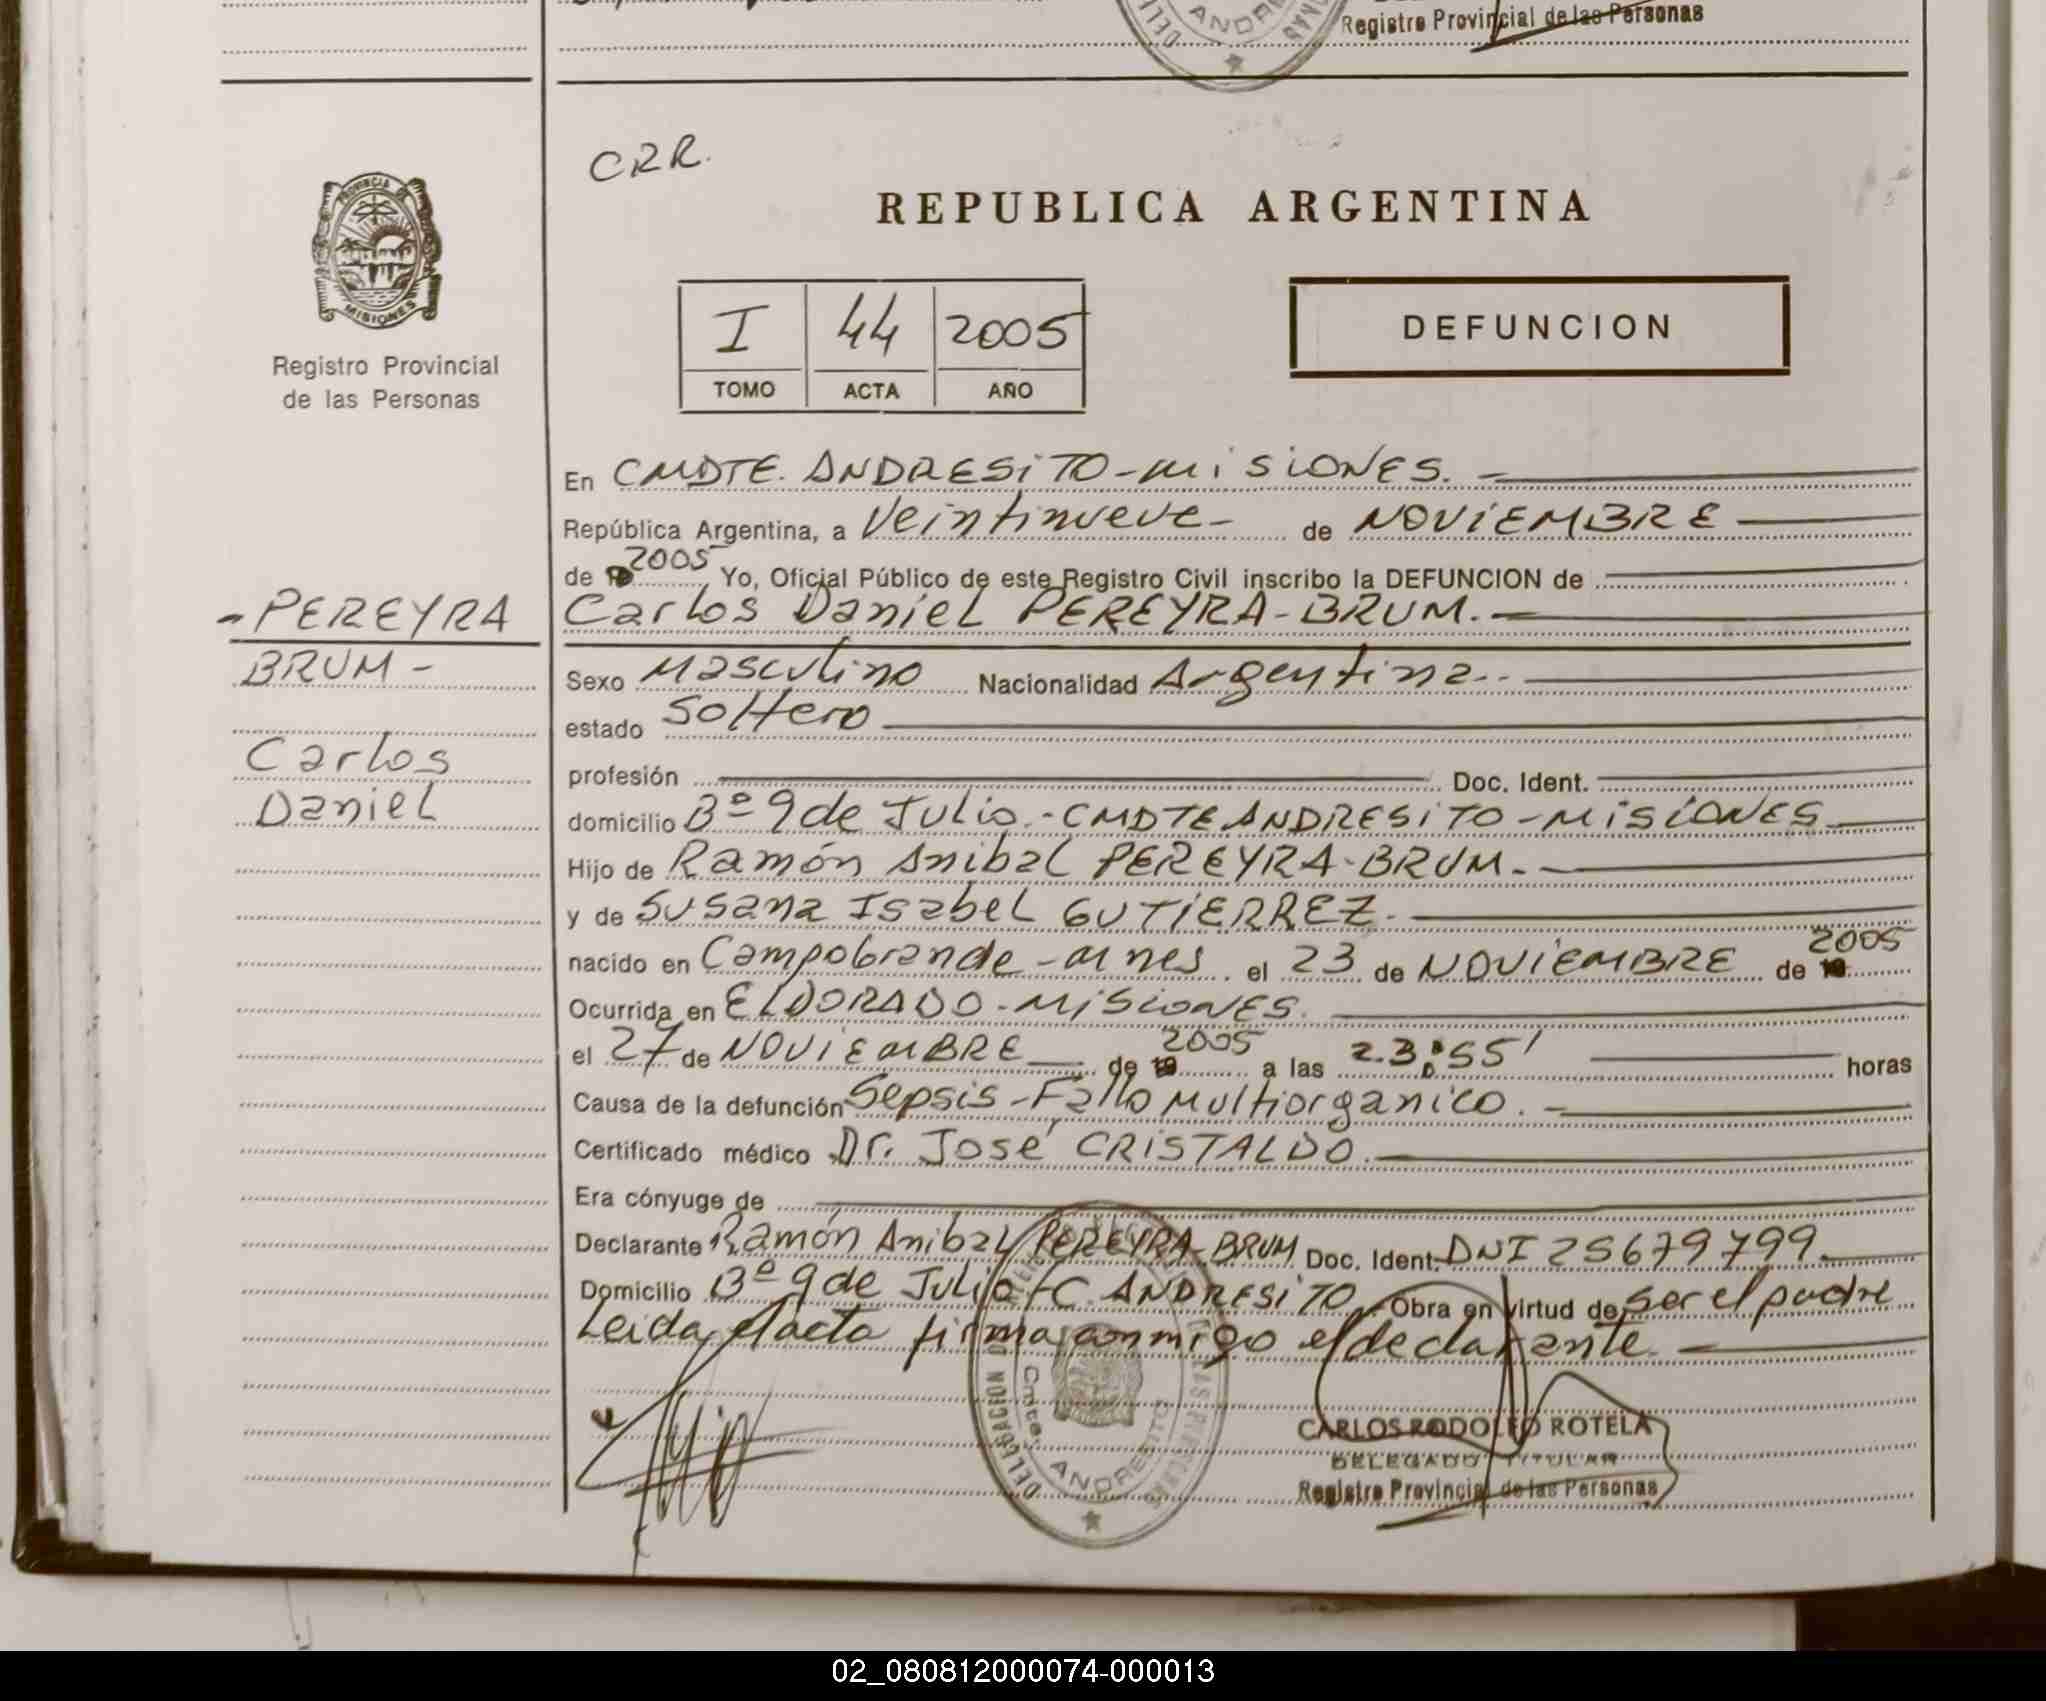 ANDRE
Registro Provincial de las Personas
CRR.
PROVINCIA DE
MISIONES
Registro Provincial
de las Personas
REPUBLICA ARGENTINA
I 44 2005
TOMO ACTA AÑO
DEFUNCION
En CMDTE. ANDRESITO - MISIONES.
República Argentina, a Veintinueve - de NOVIEMBRE
de 2005 Yo, Oficial Público de este Registro Civil inscribo la DEFUNCION de
- PEREYRA
BRUM -
Carlos
Daniel
Carlos Daniel PEREYRA - BRUM.
Sexo Masculino Nacionalidad Argentina.
estado Soltero
profesión Doc. Ident.
domicilio Bº 9 de Julio - CMDTE ANDRESITO - MISIONES
Hijo de Ramón Anibal PEREYRA - BRUM.
y de Susana Isabel GUTIERREZ.
nacido en Campo Grande - Mnes. el 23 de NOVIEMBRE de 2005
Ocurrida en ELDORADO - MISIONES.
el 27 de NOVIEMBRE de 2005 a las 23:55' horas
Causa de la defunción Sepsis - Fallo Multiorganico.
Certificado médico Dr. José CRISTALDO.
Era cónyuge de
Declarante Ramón Anibal PEREYRA - BRUM Doc. Ident. DNI 25679799.
Domicilio Bº 9 de Julio - C. ANDRESITO Obra en virtud de ser el padre
Leida el acta firma conmigo el declarante.
DELEGACION Cmte. ANDRESITO
CARLOS RODOLFO ROTELA
DELEGADO TITULAR
Registro Provincial de las Personas
02_080812000074-000013